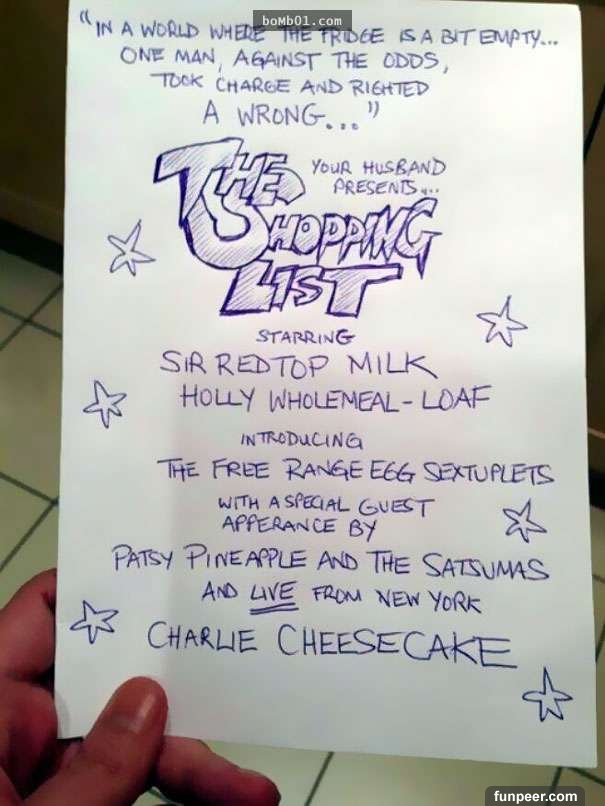 boMb01.com
"IN A WORLD WHERE THE FRIDGE IS A BIT EMPTY...
ONE MAN, AGAINST THE ODDS,
TOOK CHARGE AND RIGHTED
A WRONG..."
YOUR HUSBAND
PRESENTS...
THE
SHOPPING
LIST
STARRING
SIR REDTOP MILK
HOLLY WHOLEMEAL-LOAF
INTRODUCING
THE FREE RANGE EGG SEXTUPLETS
WITH A SPECIAL GUEST
APPERANCE BY
PATSY PINEAPPLE AND THE SATSUMAS
AND LIVE FROM NEW YORK
CHARLIE CHEESECAKE
funpeer.com